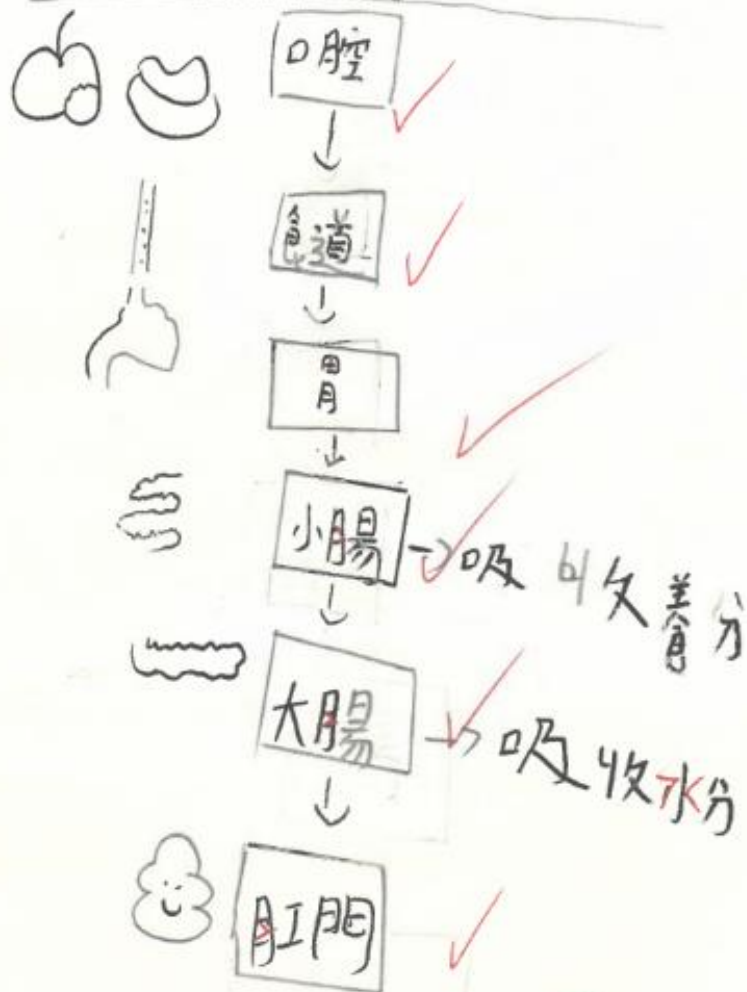 口腔
食道
胃
小腸 → 吸收養分
大腸 → 吸收水分
肛門